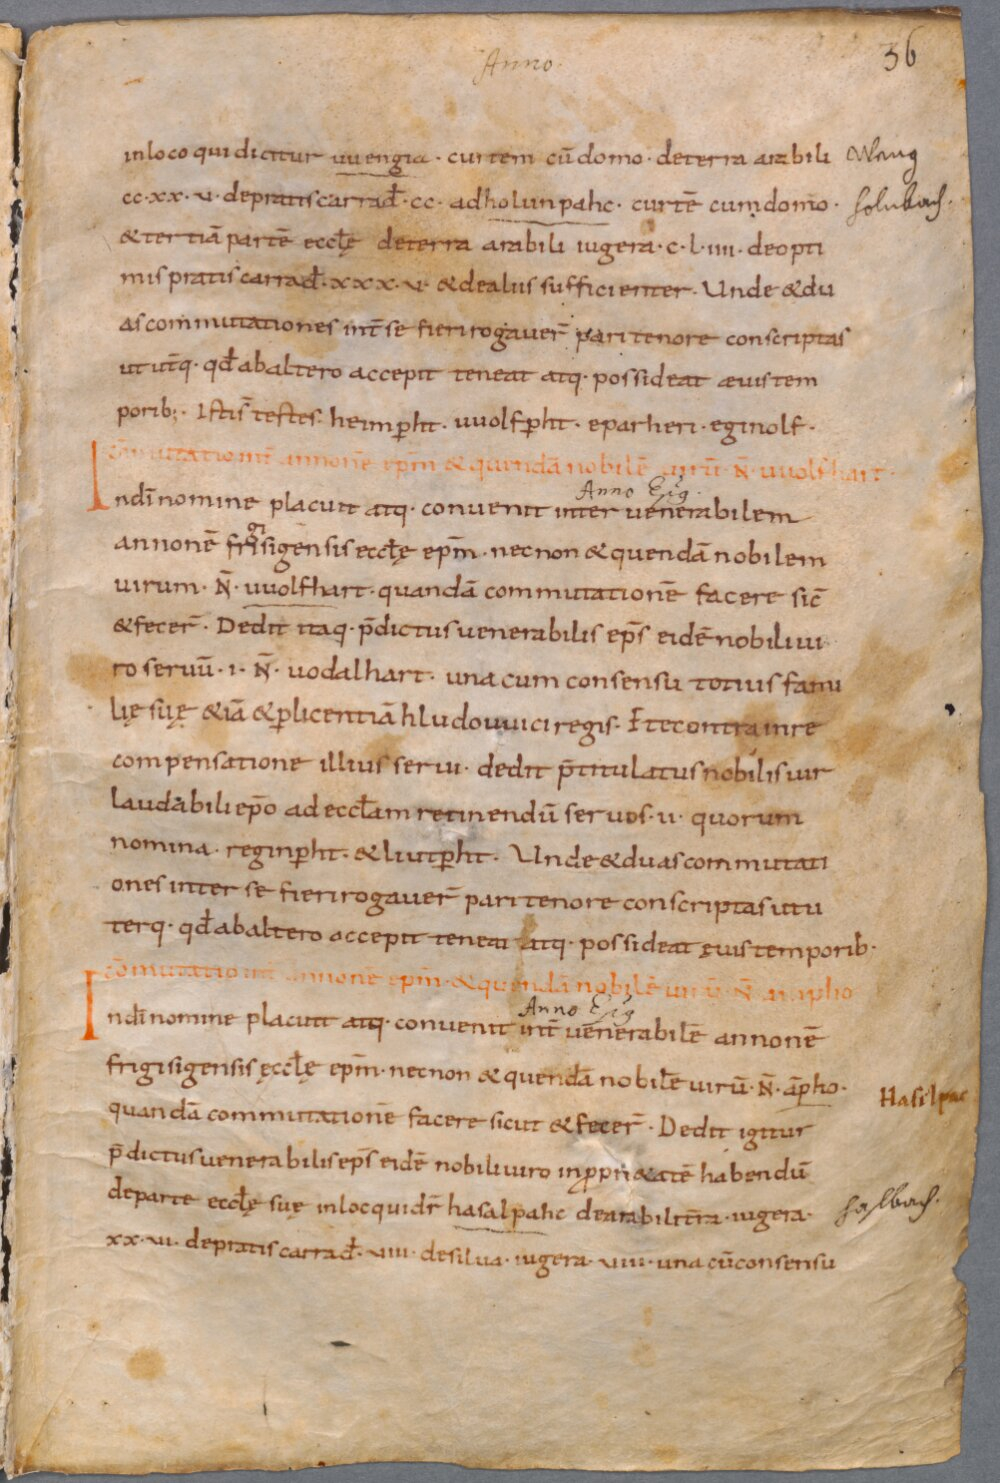 Anno.
36
in loco qui dicitur uuengia · curtem cū domo · de terra arabili
Weng
cc·xx·v· de pratis carrađ · cc · ad holunpahc · curtē cum domo ·
holnbach.
& tertiā partē eccłę de terra arabili iugera · c·l·iiii · de opti
mis pratis carrađ · xxx·v· & de aliis sufficienter · Unde & du
as commutationes int̄ se fieri rogauer̄ pari tenore conscriptas
ut ut̄q· qđ ab altero accepit teneat atq· possideat æuis tem
porib; · Isti s̄ testes · heimp̄ht · uuolfp̄ht · eparheri · eginolf ·
Cōmutatio int̄ annonē ep̄m & quendā nobilē uirū · N̄ · uuolfhart ·
Anno Ep̄g.
Indī nomine placuit atq· conuenit inter uenerabilem
annonē frigisigensis eccłę ep̄m · necnon & quendā nobilem
uirum · N̄ · uuolfhart · quandā commutationē facere sic̄
& fecer̄ · Dedit itaq· p̄dictus uenerabilis ep̄s eidē nobili ui
ro seruū · i · N̄ · uodalhart · una cum consensu totius fami
lię suę & iā & p̄ licentiā hludouuici regis · Et e contra in re
compensatione illius serui · dedit p̄titulatus nobilis uir
laudabili ep̄o ad eccłam retinendū seruos · ii · quorum
nomina · reginp̄ht · & liutp̄ht · Unde & duas commutati
ones inter se fieri rogauer̄ pari tenore conscriptas ut u
terq· qđ ab altero accepit teneat atq· possideat ęuis temporib ·
Cōmutatio int̄ annonē ep̄m · & quendā nobilē uirū · N̄ · arapho
Anno Ep̄g
Indī nomine placuit atq· conuenit int̄ uenerabilē annonē
frigisigensis ęccłę ep̄m · necnon & quendā nobilē uirū · N̄ · ap̄ho ·
Hasilpac
quandā commutationē facere sicut & fecer̄ · Dedit igitur
p̄dictus uenerabilis ep̄s eidē nobili uiro in p̄pri&atē habendū
de parte eccłę suę in loc qui dr̄ hasalpahc de arabil t̄ra · iugera ·
haslbach.
xx·vi · de pratis carrađ · viiii · de silua · iugera · viii · una cū consensu